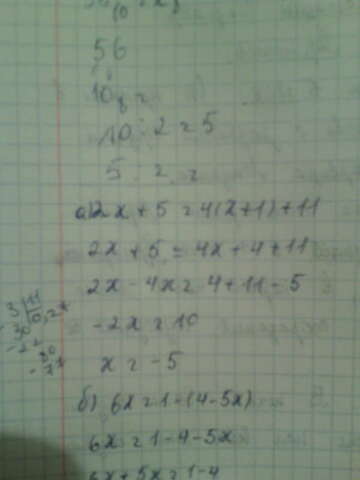 56
10
10 : 2 = 5
5
а) 2x + 5 = 4(x+1) + 11
2x + 5 = 4x + 4 + 11
2x - 4x = 4 + 11 - 5
-2x = 10
x = -5
б) 6x = 1 - (4 - 5x)
6x = 1 - 4 - 5x
6x + 5x = 1 - 4
3 11
30
22
80
77